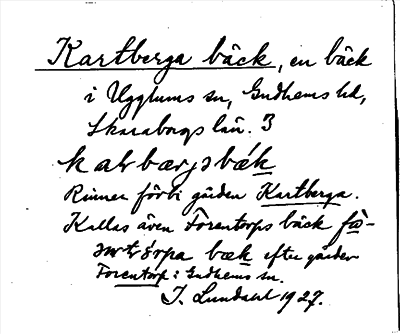 Kartberga bäck, en bäck
i Ugglums sn, Gudhems hd,
Skaraborgs län. 3
Rinner förbi gården Kartberga.
Kallas även Torentorps bäck
bæk efter gården
Torentorp i Gudhems sn.
I. Lundahl 1927.